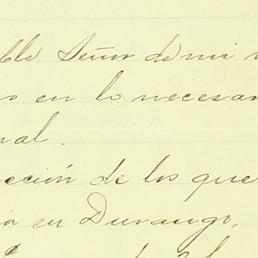 ble Señor de mi
s en lo necesar
nal.
ección de los que
ia en Durango,